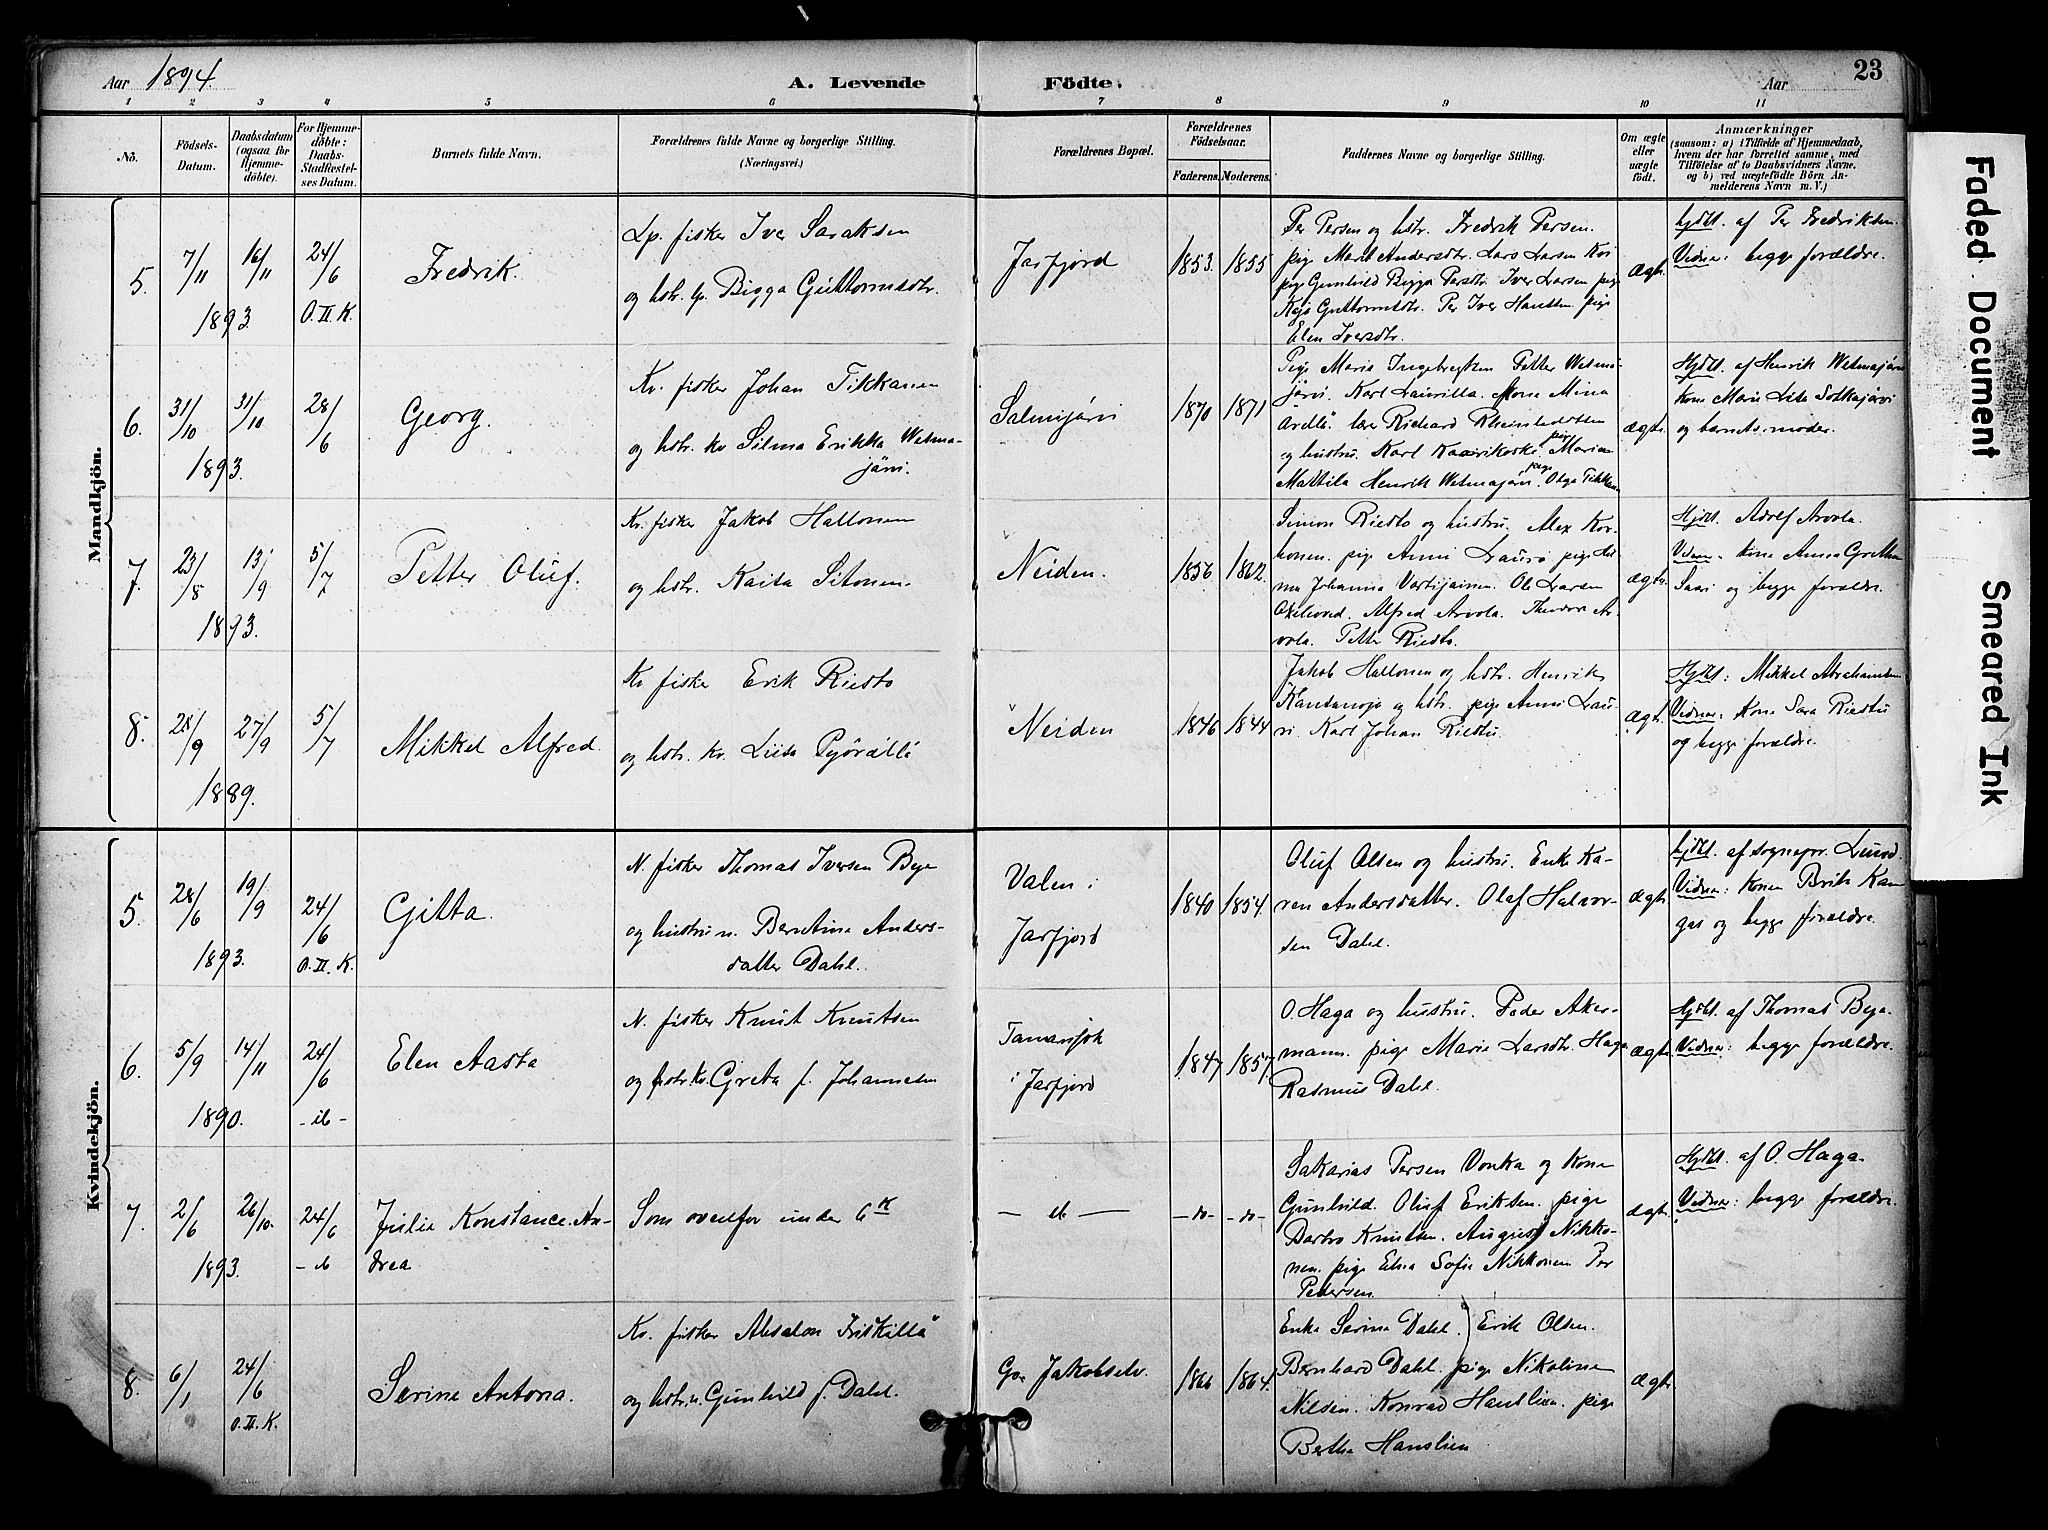 Aar 1894.
A. Levende Födte.
Aar
23
1 2 3 4 5 6 7 8 9 10 11
No.
Födsels-Datum.
Daabsdatum (ogsaa for Hjemme-döbte).
For Hjemme-döbte: Daabs-Stadfæstel-ses Datum.
Barnets fulde Navn.
Forældrenes fulde Navne og borgerlige Stilling.
(Næringsvei.)
Forældrenes Bopæl.
Forældrenes Födselsaar.
Faderens. Moderens.
Faddernes Navne og borgerlige Stilling.
Om ægte eller uægte födt.
Anmærkninger
(saasom: a) i Tilfælde af Hjemmedaab, hvem der har forrettet samme, med Tilföielse af to Daabsvidners Navne, og b) ved uægtefödte Börn An-melderens Navn m. V.)
Mandkjön.
5. 7/11 1893. 16/11 24/6 O.II.K.
Fredrik
Lp. fisker Iver Saraksen
og hstr. lp. Bigga Guttormsdtr.
Jarfjord
1853. 1855
Per Persen og hstr. Fredrik Persen.
pige Marit Andersdtr. Lars Larsen
pige Gunhild Bigga Persdtr. Iver Larsen pige
Guttormsdtr. Per Iver Hansen pige
Elen Iversdtr.
ægte
hjdbt. af Per Fredriksen.
Vidner: begge forældre.
6. 31/10 1893. 31/10 28/6
Georg.
Kv. fisker Johan Tikkanen
og hstr. kv Silma Erikka Wetma-
järvi.
Salmijärvi
1870 1871
Pige Maria Ingebregtsen Petter Wetma-
järvi. Karl Laurilla. Kone Mina
Richard
og hustru. Karl pige Maria
Mattila Henrik Wetmajärvi. pige Olga Tikkanen
ægte
Hjdbt. af Henrik Wetmajärvi
Kone Maria Lisa
og barnets moder.
7. 23/8 1893. 13/9 5/7
Petter Oluf.
Kv. fisker Jakob Hallonen
og hstr. Kaisa Sitonen
Neiden.
1856 1862.
Simon Riesto og hustru. Alex Kor-
honen. pige Anni Lauri pige Hel-
Johanna Ole Larsen
Alfred Arvola. Theodor Ar-
vola. Petter Riesto.
ægte
Hjdbt. Adolf Arvola.
Vidner: Kone Anna Grethe
Saari og begge forældre.
8. 28/9 1889. 27/9 5/7
Mikkel Alfred.
Kv fisker Erik Riesto
og hstr. kv. Liisa Pyörällä
Neiden
1846 1844
Jakob Hallonen og hstr. Henrik
Kantanoja og hstr. pige Anni Lau-
ri. Karl Johan Riesto.
ægte
Hjdbt: Mikkel Abrahamsen
Vidner: Kone Sara Riesto
og begge forældre.
Kvindekjön.
5. 28/6 1893. 19/9 24/6 O.II.K.
Gitta.
N. fisker Thomas Iversen Bye
og hustru n. Berntine Anders-
datter Dahl.
Valen i
Jarfjord
1840 1854.
Oluf Olsen og hustru. Enke Ka-
ren Andersdatter. Olaf Halvor-
sen Dahl.
ægte
hjdbt. af sognepr. Lund.
Vidner: Konen Brita Kan-
gas og begge forældre.
6. 5/9 1890. 14/11 24/6 - ib -
Elen Aasta
N. fisker Knut Knutsen
og hstr. kv. Greta f. Johannesen
i Jarfjord
1847 1857.
O. Haga og hustru. Peder Aker-
mann. pige Marie Larsdtr. Haga
Rasmus Dahl.
ægte
Hjdbt. af Thomas Bye.
Vidner: begge forældre.
7. 2/6 1893. 26/10. 24/6 - ib
Julie Konstance An-
drea
Som ovenfor under 6K
— ib —
- do - - do -
Sakarias Persen Vonka og Kone
Gunhild. Oluf Eriksen. pige
Knudsen. August Nikko-
nen. pige Elna Sofie Nikkonen Per
Pedersen.
ægte
Hjdbt. af O. Haga.
Vidner: begge forældre.
8. 6/1 24/6 O.II.K.
Serine Antona.
Kv. fisker Absalon Friskillä
og hstr. n. Gunhild f. Dahl.
Gr. Jakobselv.
1866 1864.
Enke Serine Dahl. Erik Olsen.
Bernhard Dahl. pige Nikoline
Nilsen. Konrad Hanslien. pige
Berthe Hanslien
ægte
Faded Document
Smeared Ink